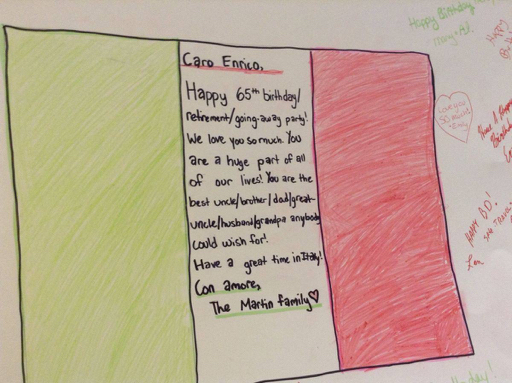 Caro Enrico,
Happy 65th birthday/
retirement/going-away party!
We love you so much. You
are a huge part of all
of our lives! You are the
best uncle/brother/dad/great-
uncle/husband/grandpa anybody
could wish for!
Have a great time in Italy!
Con amore,
The Martin family♡
Happy Birthday
Happy
Love you
Have A Happy
Birthday
HAPPY BD!